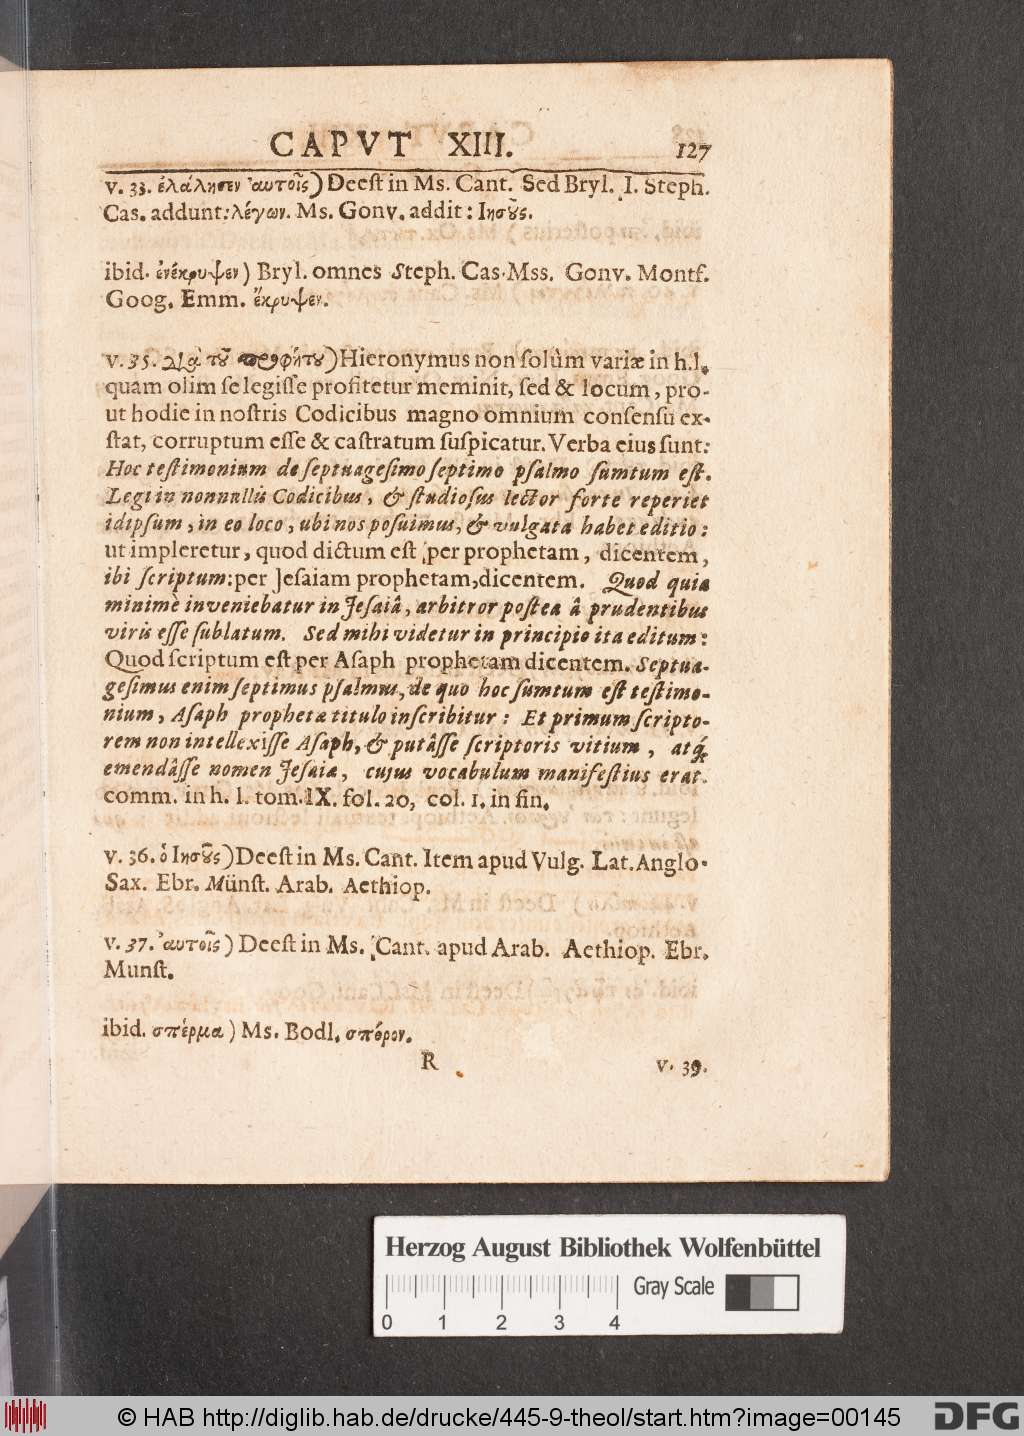 CAPVT XIII. 127
v. 33. ἐλάλησεν ἀυτοῖς) Deeſt in Ms. Cant. Sed Bryl. I. Steph.
Cas. addunt: λέγων. Ms. Gonv. addit: Ιησοῦς.
ibid. ἐνέκρυψεν) Bryl. omnes Steph. Cas. Mss. Gonv. Montf.
Goog. Emm. ἔκρυψεν.
v. 35. διὰ τοῦ προφήτου) Hieronymus non ſolùm variæ in h.l.
quam olim ſe legiſſe profitetur meminit, ſed & locum, pro-
ut hodie in noſtris Codicibus magno omnium conſenſu ex-
ſtat, corruptum eſſe & caſtratum ſuſpicatur. Verba eius ſunt:
Hoc teſtimonium de ſeptuageſimo ſeptimo pſalmo ſumtum eſt.
Legi in nonnullis Codicibus, & ſtudioſus lector forte reperiet
idipſum, in eo loco, ubi nos poſuimus, & vulgata habet editio:
ut impleretur, quod dictum eſt per prophetam, dicentem,
ibi ſcriptum: per Jeſaiam prophetam, dicentem. Quod quia
minimè inveniebatur in Jeſaiâ, arbitror poſtea â prudentibus
viris eſſe ſublatum. Sed mihi videtur in principio ita editum:
Quod ſcriptum eſt per Aſaph prophetam dicentem. Septua-
geſimus enim ſeptimus pſalmus, de quo hoc ſumtum eſt teſtimo-
nium, Aſaph prophetæ titulo inſcribitur: Et primum ſcripto-
rem non intellexiſſe Aſaph, & putâſſe ſcriptoris vitium, atq́;
emendâſſe nomen Jeſaiæ, cujus vocabulum manifeſtius erat.
comm. in h. l. tom. IX. fol. 20, col. 1. in fin.
v. 36. ὁ Ιησοῦς) Deeſt in Ms. Cant. Item apud Vulg. Lat. Anglo-
Sax. Ebr. Münſt. Arab. Aethiop.
v. 37. ἀυτοῖς) Deeſt in Ms. Cant. apud Arab. Aethiop. Ebr.
Munſt.
ibid. σπέρμα) Ms. Bodl. σπόρον.
R v. 39.
Herzog August Bibliothek Wolfenbüttel
Gray Scale
0 1 2 3 4
© HAB http://diglib.hab.de/drucke/445-9-theol/start.htm?image=00145
DFG